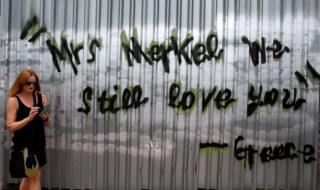 "Mrs Merkel We
still love you"
— Greece